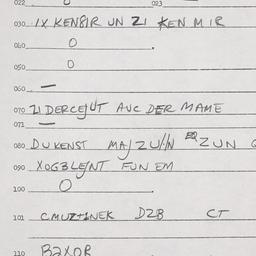 022 0 023
030 IX KENBIR UN ZI KEN MIR
040 0
050 0
060 —
070 ZI DERCEJUT AUC DER MAME
071 —
080 DU KENST MAJ ZUN
090 FUN EM
100 0
101 DZB CT
110 BAXOR